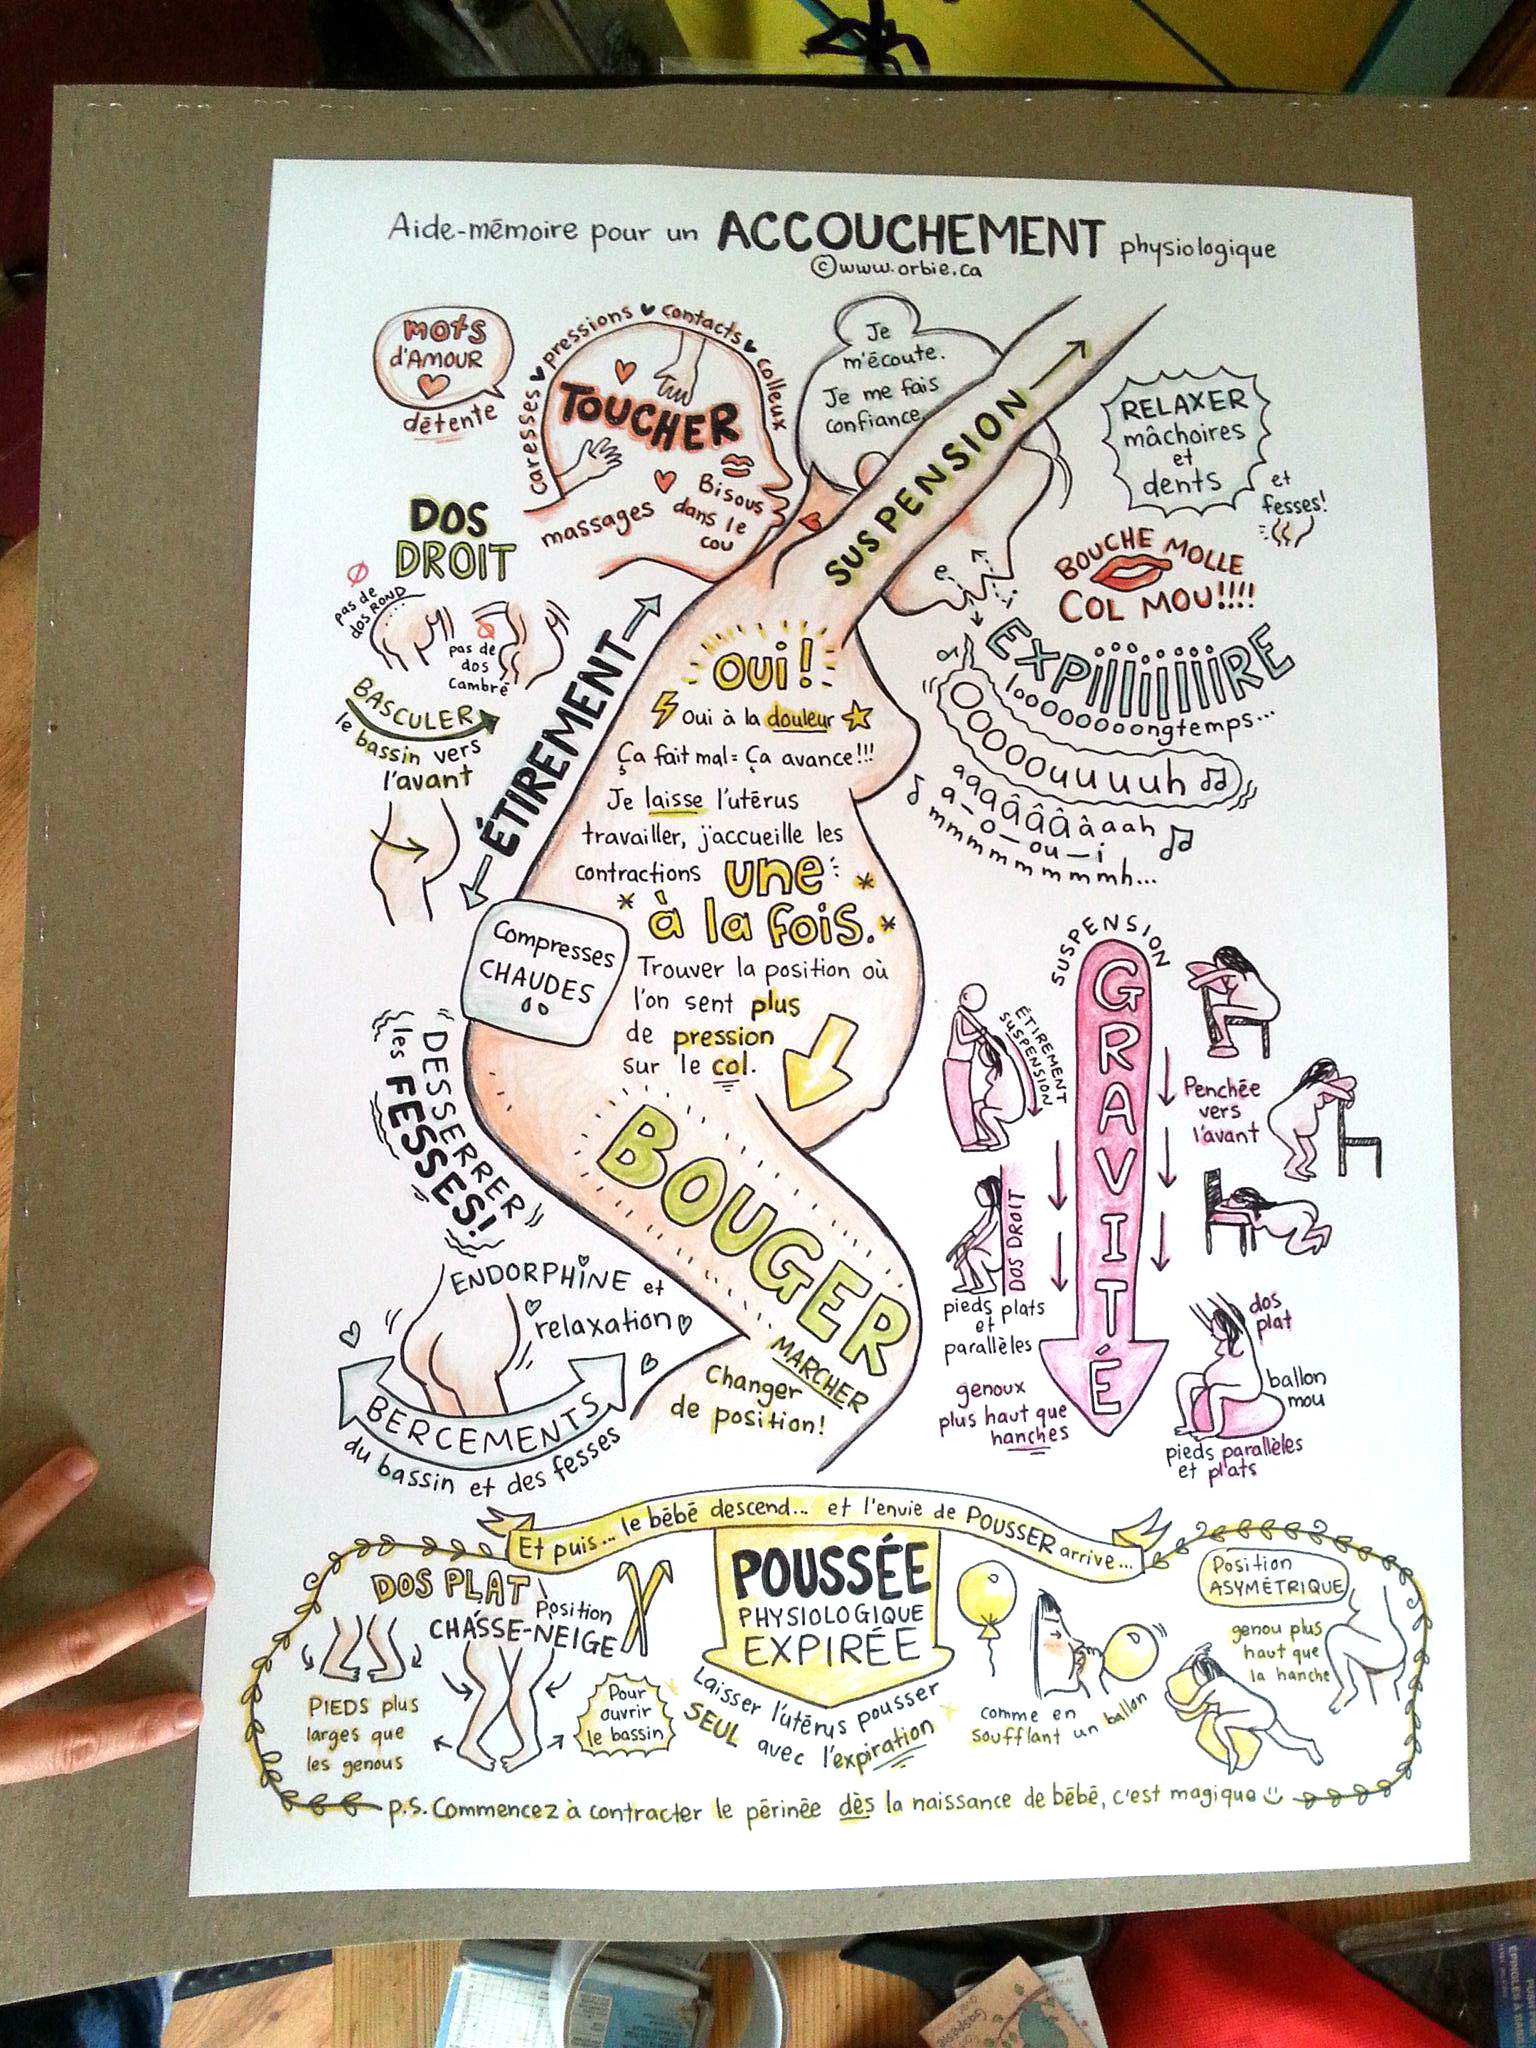 Aide-mémoire pour un ACCOUCHEMENT physiologique
©www.orbie.ca
mots
d'AMOUR
détente
caresses pressions contacts colleux
TOUCHER
massages
Bisous
dans le
cou
Je
m'écoute.
Je me fais
confiance
SUSPENSION
RELAXER
mâchoires
et
dents
et
fesses!
BOUCHE MOLLE
COL MOU!!!!
DOS
DROIT
pas de
dos ROND
pas de
dos
cambré
BASCULER
le bassin vers
l'avant
ÉTIREMENT
OUI!
Oui à la douleur
Ça fait mal = Ça avance!!!
Je laisse l'utérus
travailler, j'accueille les
contractions une
à la fois.
Trouver la position où
l'on sent plus
de pression
sur le col.
EXPIIIiiiiiiIRE
looooooooongtemps...
OOOOOuuuuuh
aaaâââââaaah
a-o-ou-i
mmmmmmmmmh...
Compresses
CHAUDES
DESSERRER
les FESSES!
BOUGER
MARCHER
Changer
de position!
ENDORPHINE et
relaxation
BERCEMENTS
du bassin et des fesses
SUSPENSION
GRAVITÉ
ÉTIREMENT
SUSPENSION
Penchée
vers
l'avant
DOS DROIT
pieds plats
et
parallèles
genoux
plus haut que
hanches
dos
plat
ballon
mou
pieds parallèles
et plats
Et puis... le bébé descend... et l'envie de POUSSER arrive...
DOS PLAT
Position
CHASSE-NEIGE
PIEDS plus
larges que
les genous
Pour
ouvrir
le bassin
POUSSÉE
PHYSIOLOGIQUE
EXPIRÉE
Laisser l'utérus pousser
SEUL avec l'expiration
comme en
soufflant un ballon
Position
ASYMÉTRIQUE
genou plus
haut que
la hanche
p.s. Commencez à contracter le périnée dès la naissance de bébé, c'est magique